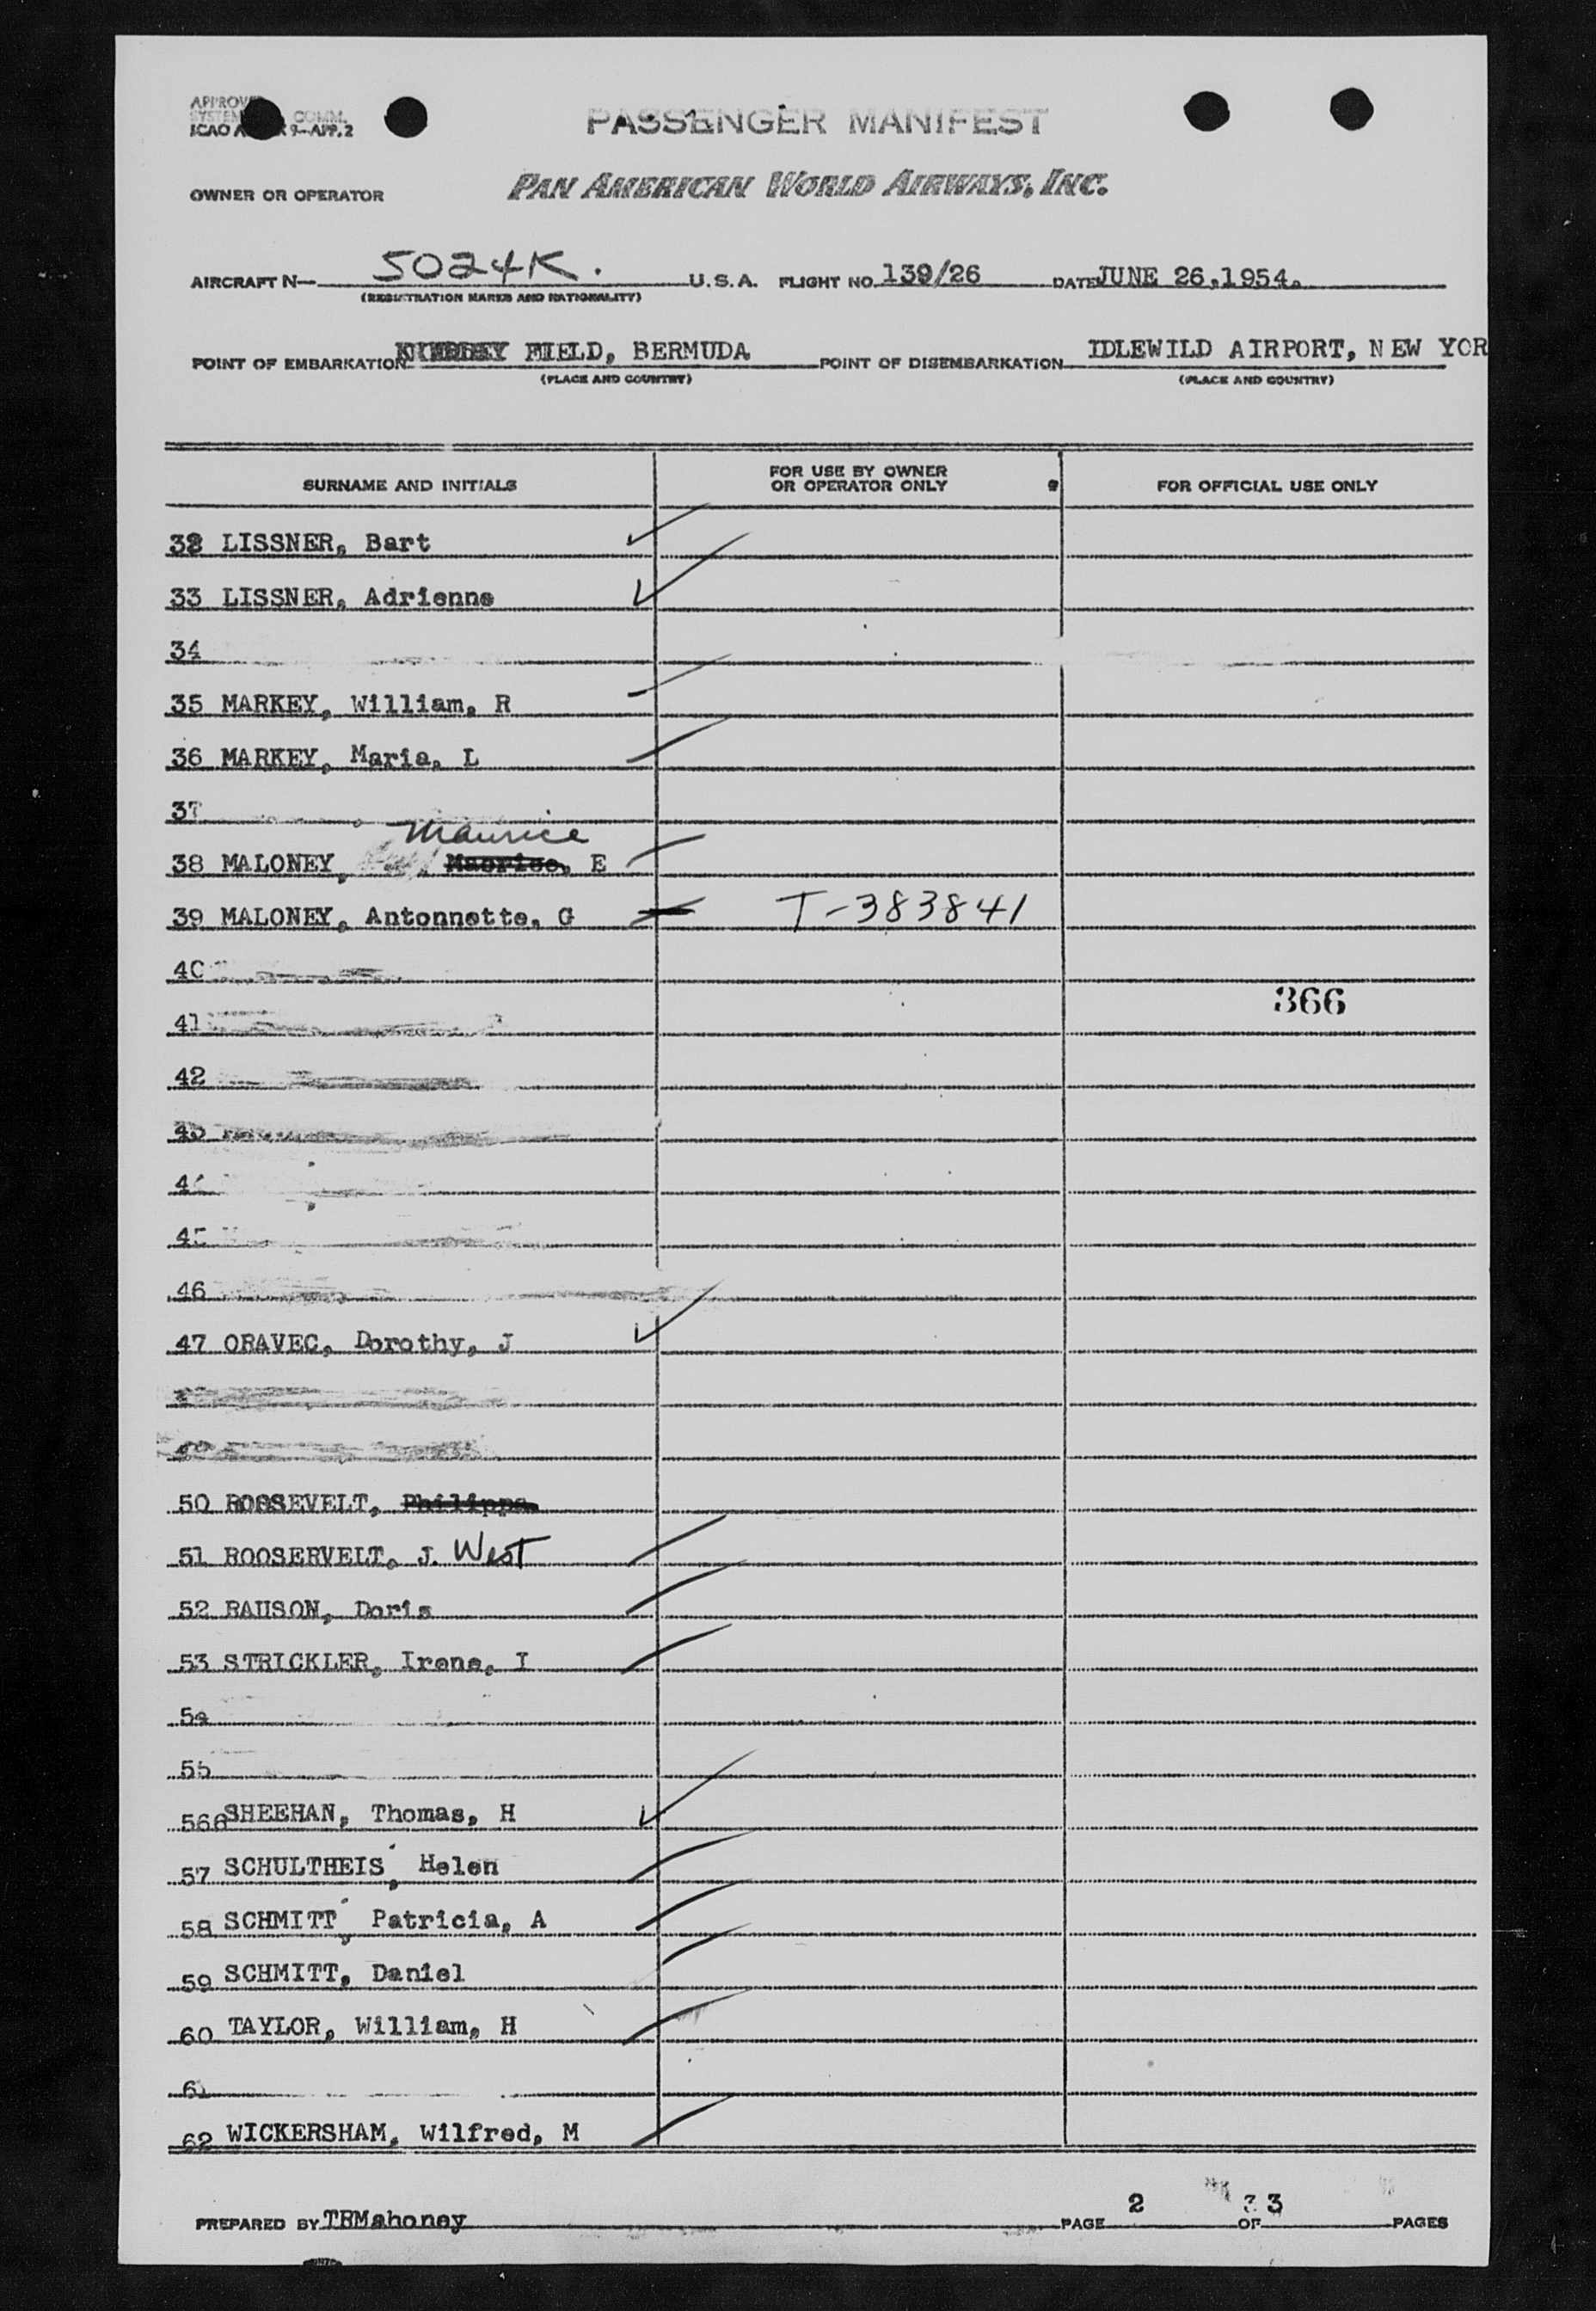 APPROVE
SYSTEM COMM.
ICAO A 9-APP. 2
PASSENGER MANIFEST
OWNER OR OPERATOR PAN AMERICAN WORLD AIRWAYS, INC.
AIRCRAFT N— 5024K. U.S.A. FLIGHT NO. 139/26 DATE JUNE 26,1954.
(REGISTRATION MARKS AND NATIONALITY)
POINT OF EMBARKATION FIELD, BERMUDA POINT OF DISEMBARKATION IDLEWILD AIRPORT, NEW YOR
(PLACE AND COUNTRY) (PLACE AND COUNTRY)
SURNAME AND INITIALS FOR USE BY OWNER OR OPERATOR ONLY FOR OFFICIAL USE ONLY
32 LISSNER, Bart
33 LISSNER, Adrienne
34
35 MARKEY, William, R
36 MARKEY, Maria, L
37
Maurice
38 MALONEY, E
39 MALONEY, Antonnette, G T-383841
40
366
41
42
46
47 ORAVEC, Dorothy, J
50 ROOSEVELT, Philippa
51 ROOSERVELT, J. West
52 RAUSON, Doris
53 STRICKLER, Irene, I
55
566 SHEEHAN, Thomas, H
57 SCHULTHEIS, Helen
58 SCHMITT, Patricia, A
59 SCHMITT, Daniel
60 TAYLOR, William, H
62 WICKERSHAM, Wilfred, M
PREPARED BY TBMahoney PAGE 2 OF 3 PAGES